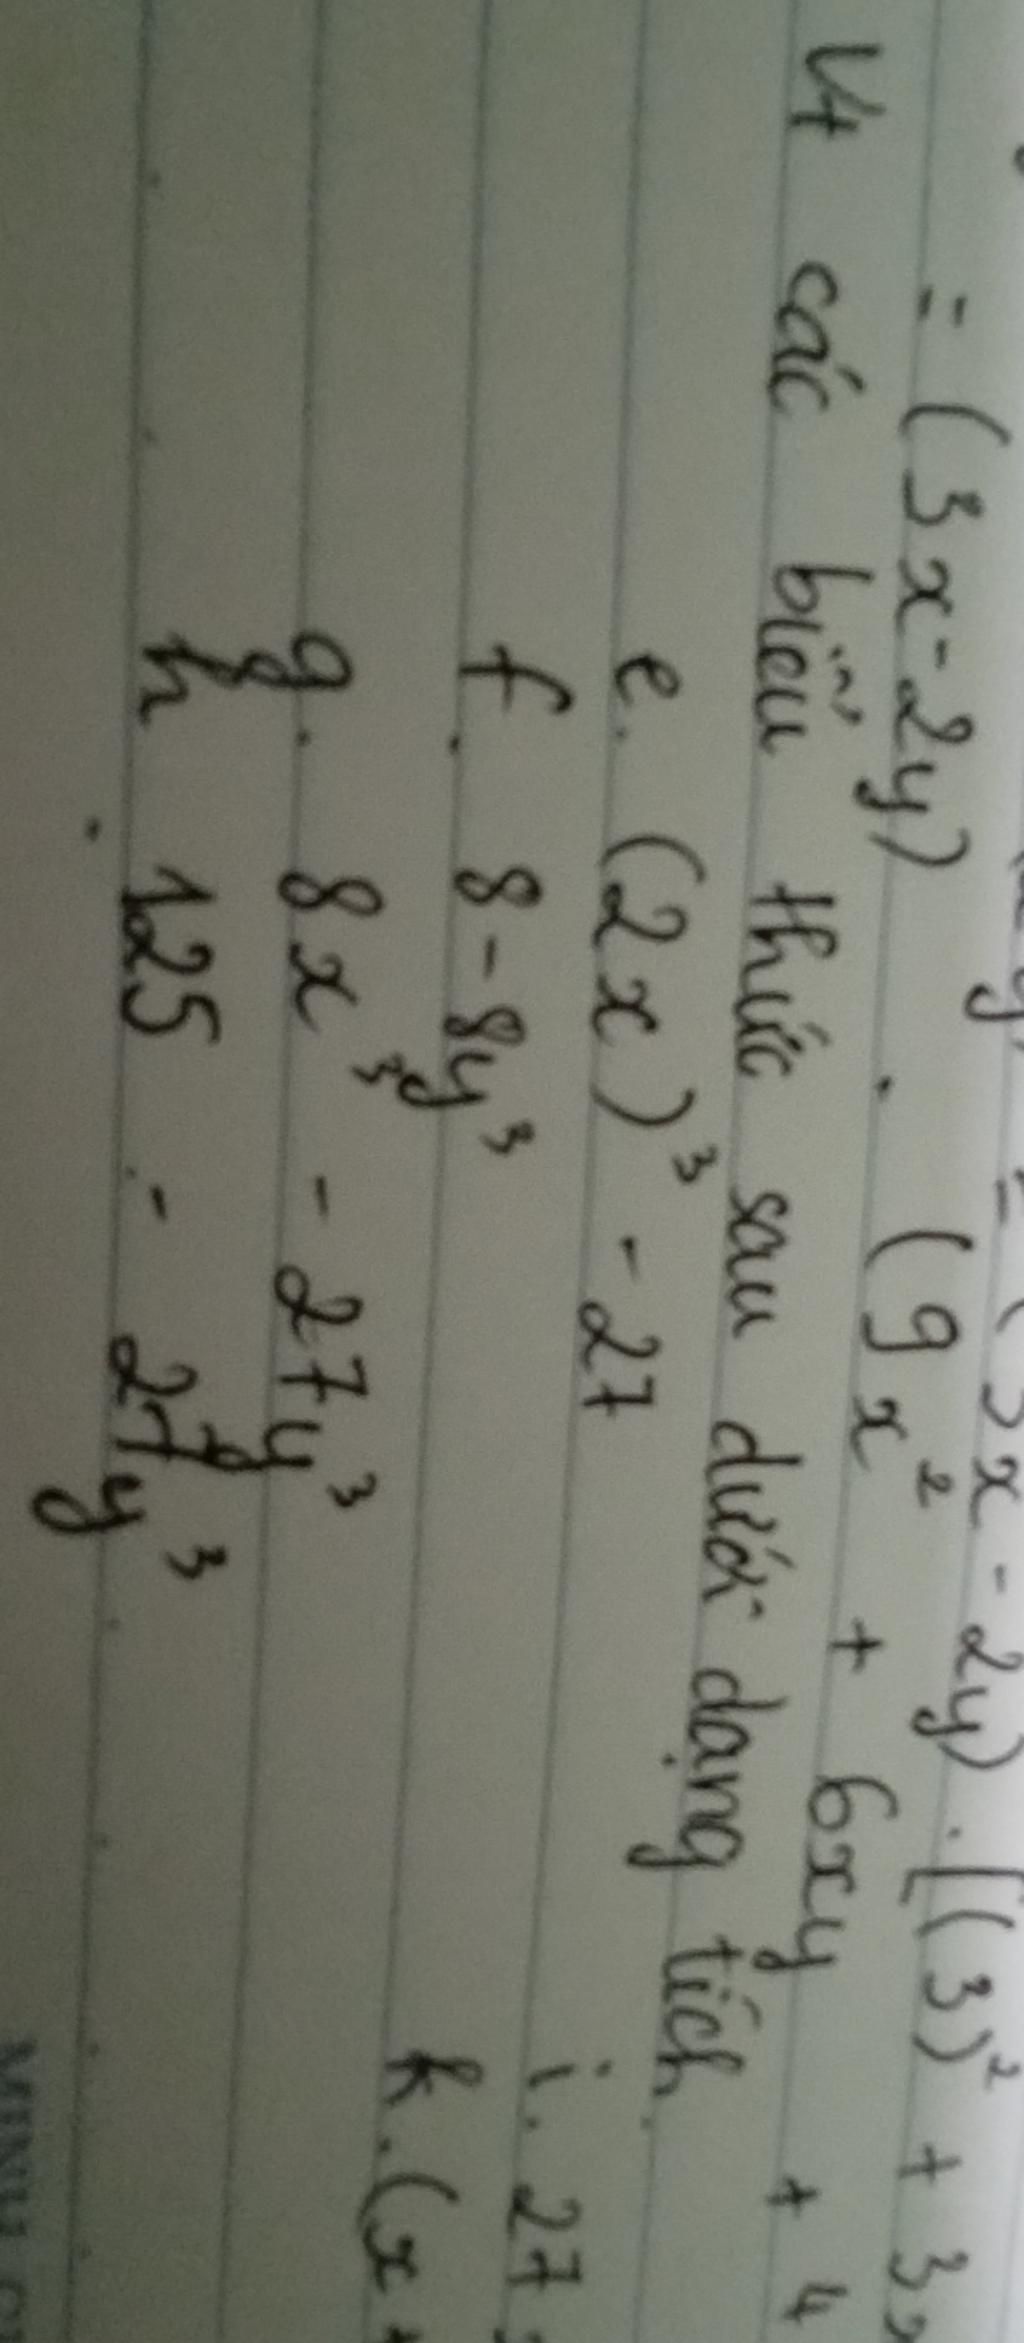 = (3x - 2y) . [(3)² + 3x
= (3x-2y) . (9x² + 6xy + 4
Vt các biểu thức sau dưới dạng tích.
e. (2x)³ - 27
i. 27
f. 8 - 8y³
k. (x +
g. 8x³ - 27y³
h. 125 - 27y³